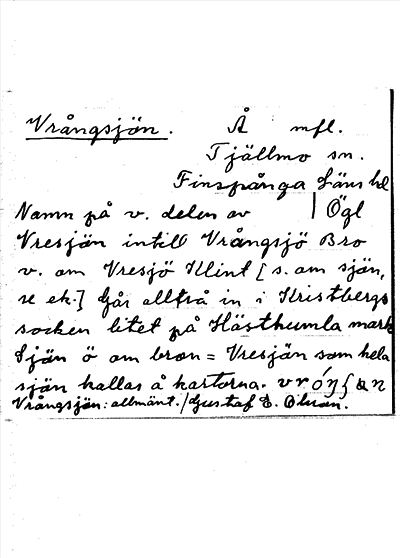 Vrångsjön. Å mfl.
Tjällmo sn.
Finspånga Läns hd
Namn på v. delen av | Ögl
Vresjön intill Vrångsjö Bro
v. om Vresjö Klint [s. om sjön,
se ek.] Går alltså in i Kristbergs
socken litet på Hästhumla mark
Sjön ö om bron = Vresjön som hela
sjön kallas å kartorna.
Vrångsjön: allmänt. / Gustaf E. Olsson.